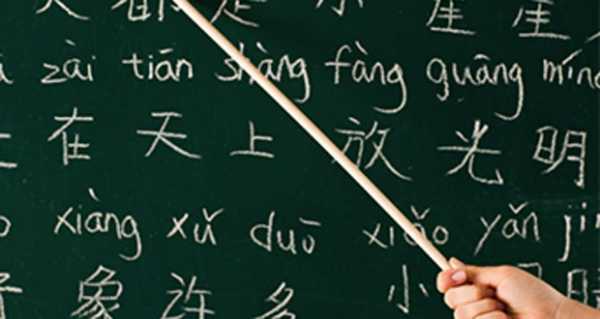 都是小星星
zài tián shàng fàng guāng míng
在天上放光明
xiàng xǔ duō xiǎo yǎn jīn
象许多小